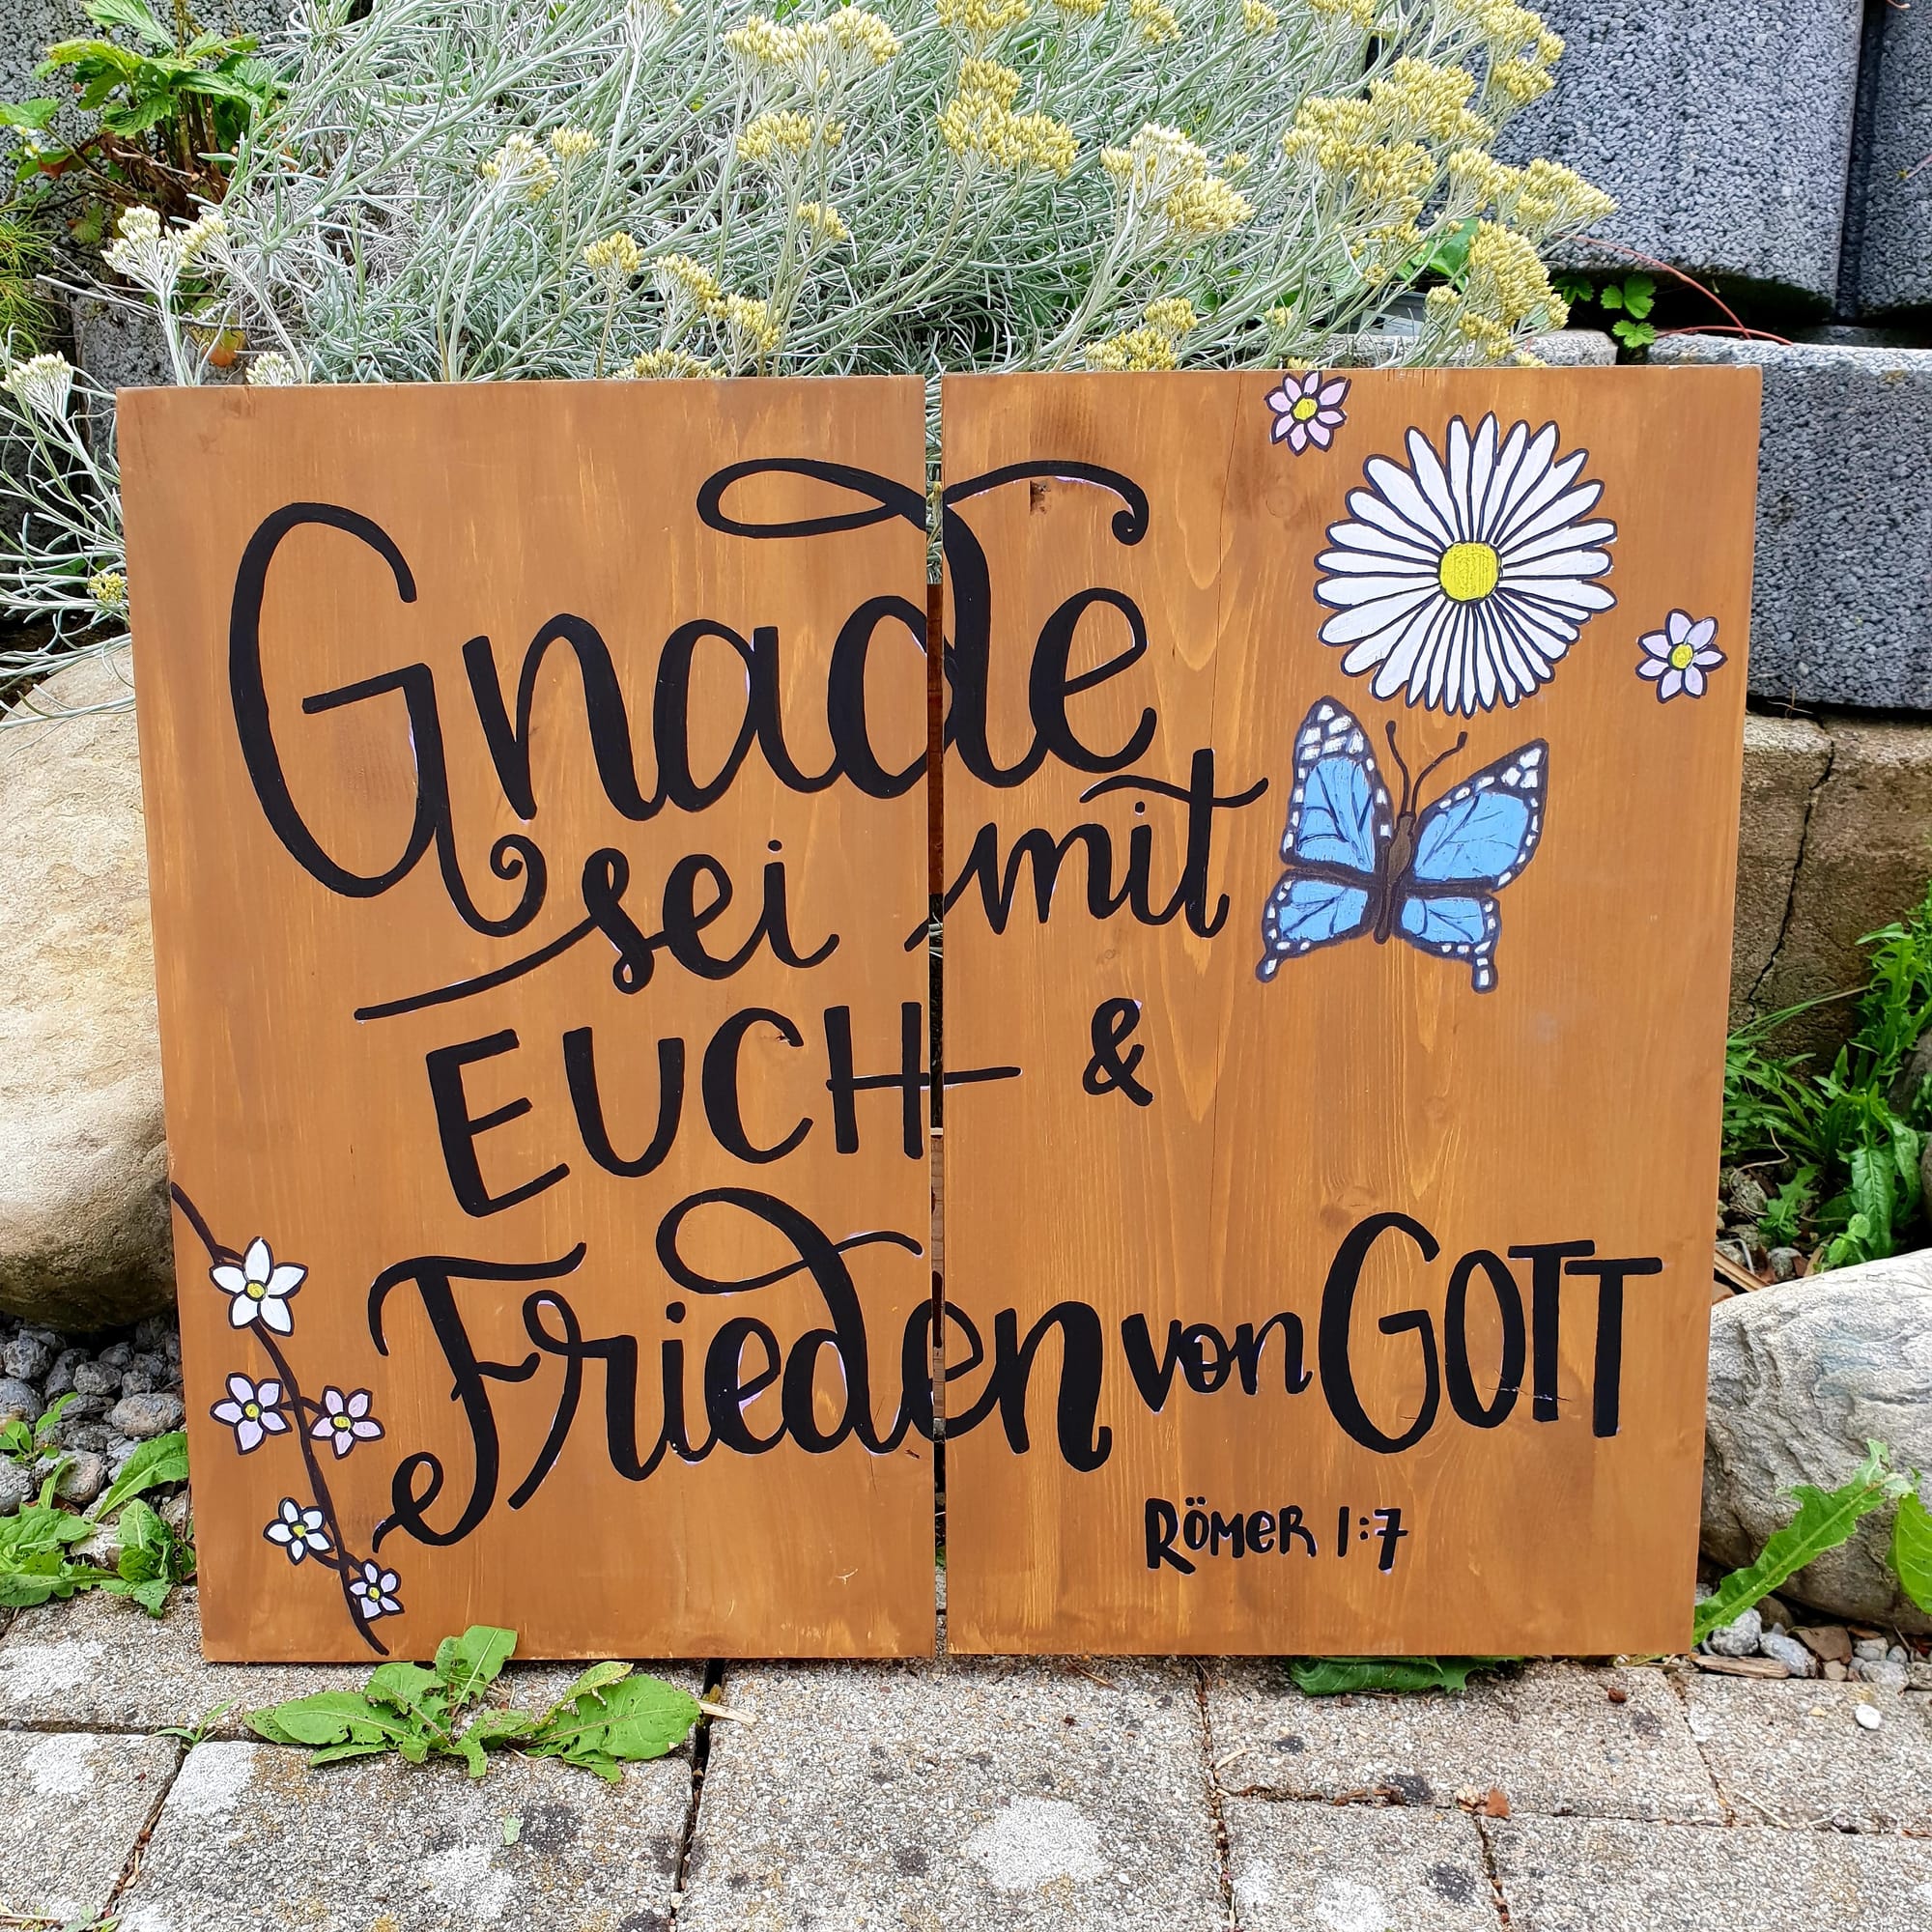 Gnade
sei mit
EUCH &
Frieden von GOTT
RÖMER 1:7